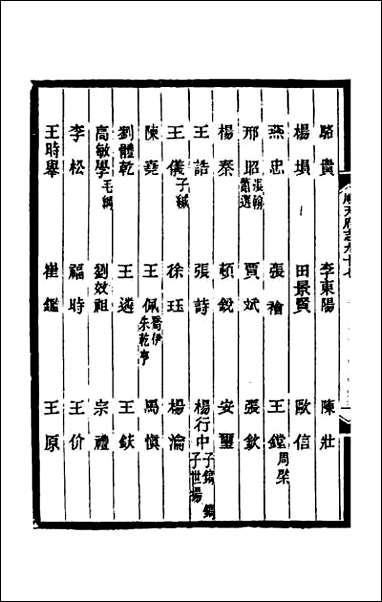 順天府志九十七
駱貴　李東陽　陳壯
楊塤　田景賢　歐信
燕忠　張禬　王鏜周榮
邢昭張翰蕭選　賈斌　張欽
楊秦　頓銳　安璽
王誥　張詩　楊行中子鎬鏑子世揚
王儀子緘　徐珏　楊淪
陳堯　王佩喬伊朱乾亨　馬愼
劉體乾　王遴　王鈇
高敏學毛綱　劉效祖　宗禮
李松　福時　王价
王時舉　崔鑑　王原